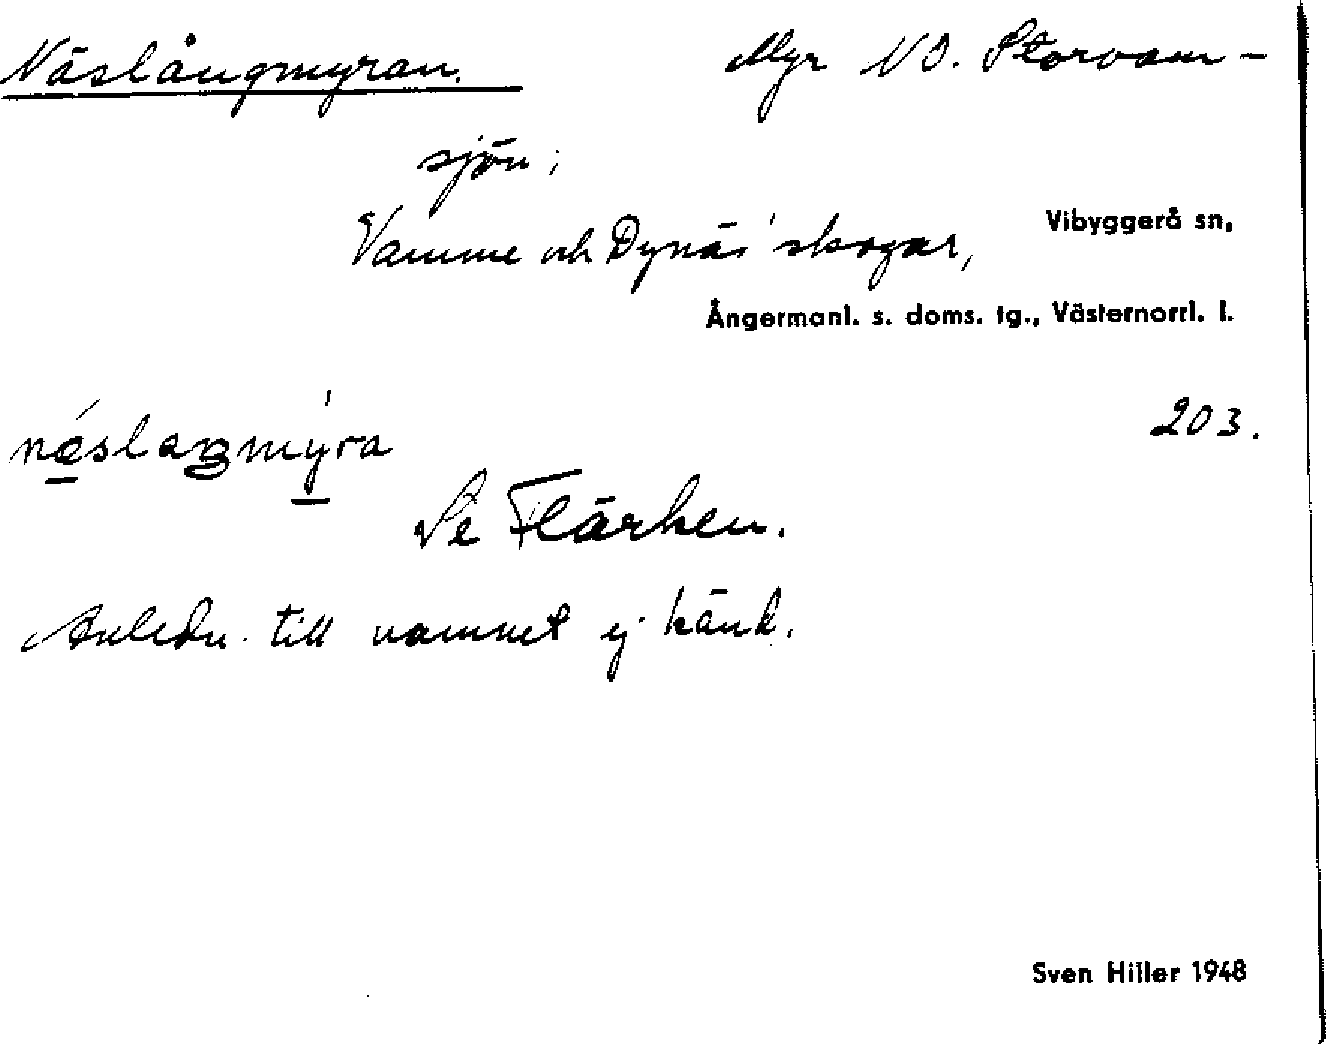 Näslångmyran.
Myr NO. Storvam-
sjön;
Vamme och Dynäs' skogar,
Vibyggerå sn,
Ångermanl. s. doms. tg., Västernorrl. l.
203.
Se Flärken.
Anledn. till namnet ej känd.
Sven Hiller 1948